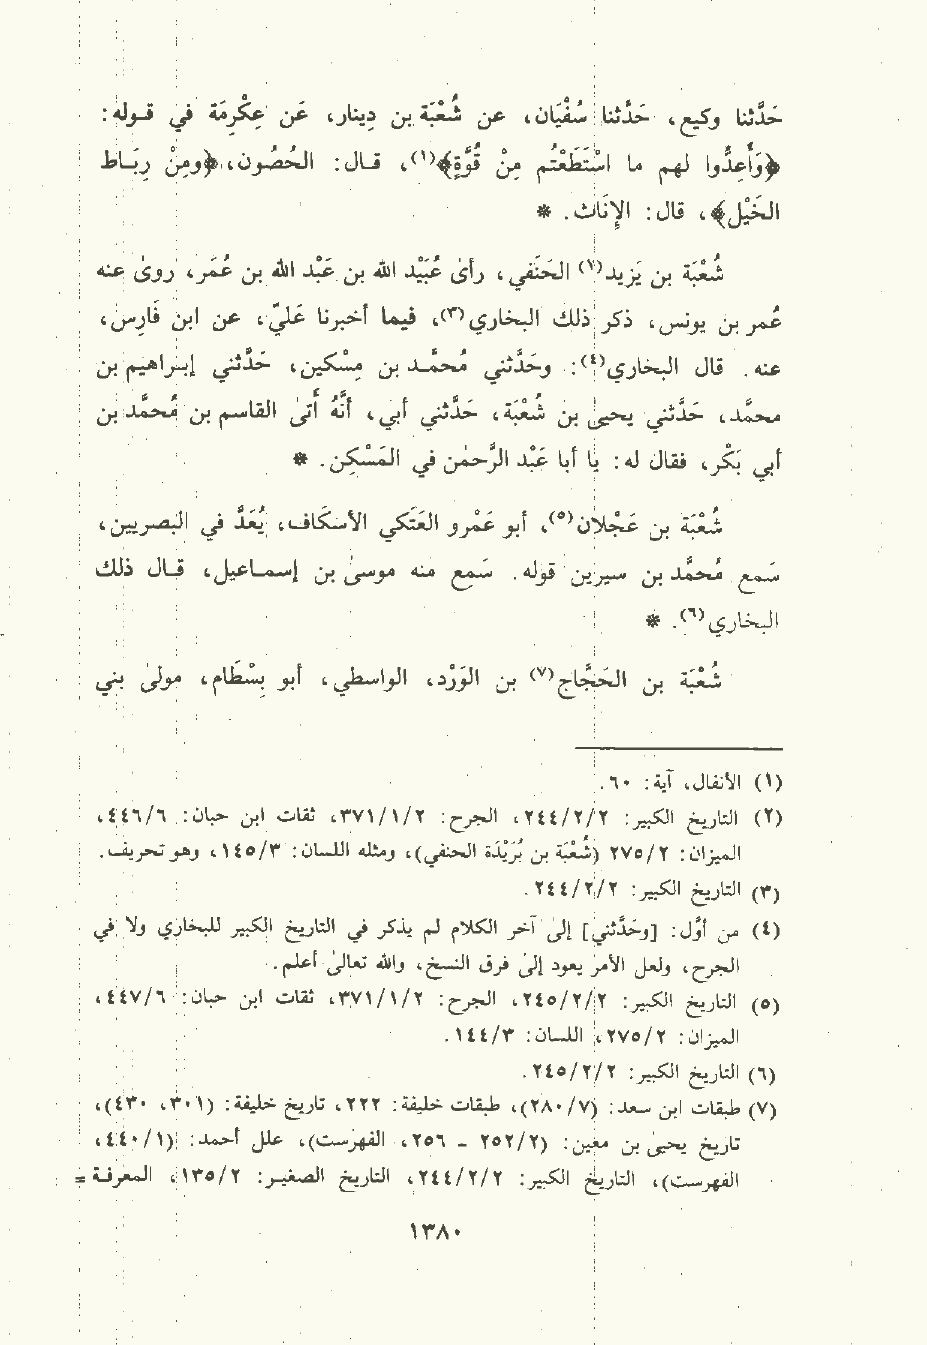 حَدَّثنا وكيع، حَدَّثنا سُفْيَان، عن شُعْبَة بن دِينار، عَن عِكْرِمَة في قـوله:
﴿وَأَعِدُّوا لهم ما اسْتَطَعْتُم مِنْ قُوَّةٍ﴾(١)، قـال: الحُصُون، ﴿ومِنْ رِبَـاط
الخَيْل﴾، قال: الإِنَاث. *
شُعْبَة بن يَزيد(٢) الحَنَفي، رأى عُبَيْد الله بن عَبْد الله بن عُمَر، روىٰ عنه
عُمر بن يونس، ذكر ذلك البخاري(٣)، فيما أخبرنا عَليّ، عن ابن فَارِس،
عنه. قال البخاري(٤): وحَدَّثني مُحمَّـد بن مِسْكين، حَدَّثني إبـراهيم بن
محمَّد، حَدَّثني يحيىٰ بن شُعْبَة، حَدَّثني أبي، أنَّهُ أَتىٰ القاسم بن مُحمَّد بن
أبي بَكْر، فقال له: يا أبا عَبْد الرَّحمٰن في المَسْكِن. *
شُعْبَة بن عَجْلان(٥)، أبو عَمْرو العَتَكي الأسكَاف، يُعَدّ في البصريين،
سَمع مُحمَّد بن سيرين قوله. سَمِع منه موسىٰ بن إسمـاعيل، قـال ذلك
البخاري(٦). *
شُعْبَة بن الحَجَّاج(٧) بن الوَرْد، الواسطي، أبو بِسْطَام، مولىٰ بني
(١) الأنفال، آية: ٦٠.
(٢) التاريخ الكبير: ٢٤٤/٢/٢، الجرح: ٣٧١/١/٢، ثقات ابن حبان: ٤٤٦/٦،
الميزان: ٢٧٥/٢ (شُعْبَة بن بُرَيْدَة الحنفي)، ومثله اللسان: ١٤٥/٣، وهو تحريف.
(٣) التاريخ الكبير: ٢٤٤/٢/٢.
(٤) من أوَّل: [وحَدَّثني] إلىٰ آخر الكلام لم يذكر في التاريخ الكبير للبخاري ولا في
الجرح، ولعل الأمر يعود إلىٰ فرق النسخ، والله تعالىٰ أعلم.
(٥) التاريخ الكبير: ٢٤٥/٢/٢، الجرح: ٣٧١/١/٢، ثقات ابن حبان: ٤٤٧/٦،
الميزان: ٢٧٥/٢، اللسان: ١٤٤/٣.
(٦) التاريخ الكبير: ٢٤٥/٢/٢.
(٧) طبقات ابن سعد: (٢٨٠/٧)، طبقات خليفة: ٢٢٢، تاريخ خليفة: (٣٠١، ٤٣٠)،
تاريخ يحيىٰ بن معين: (٢٥٢/٢ - ٢٥٦، الفهرست)، علل أحمد: (٤٤٠/١،
الفهرست)، التاريخ الكبير: ٢٤٤/٢/٢، التاريخ الصغيـر: ١٣٥/٢، المعرفـة =
١٣٨٠